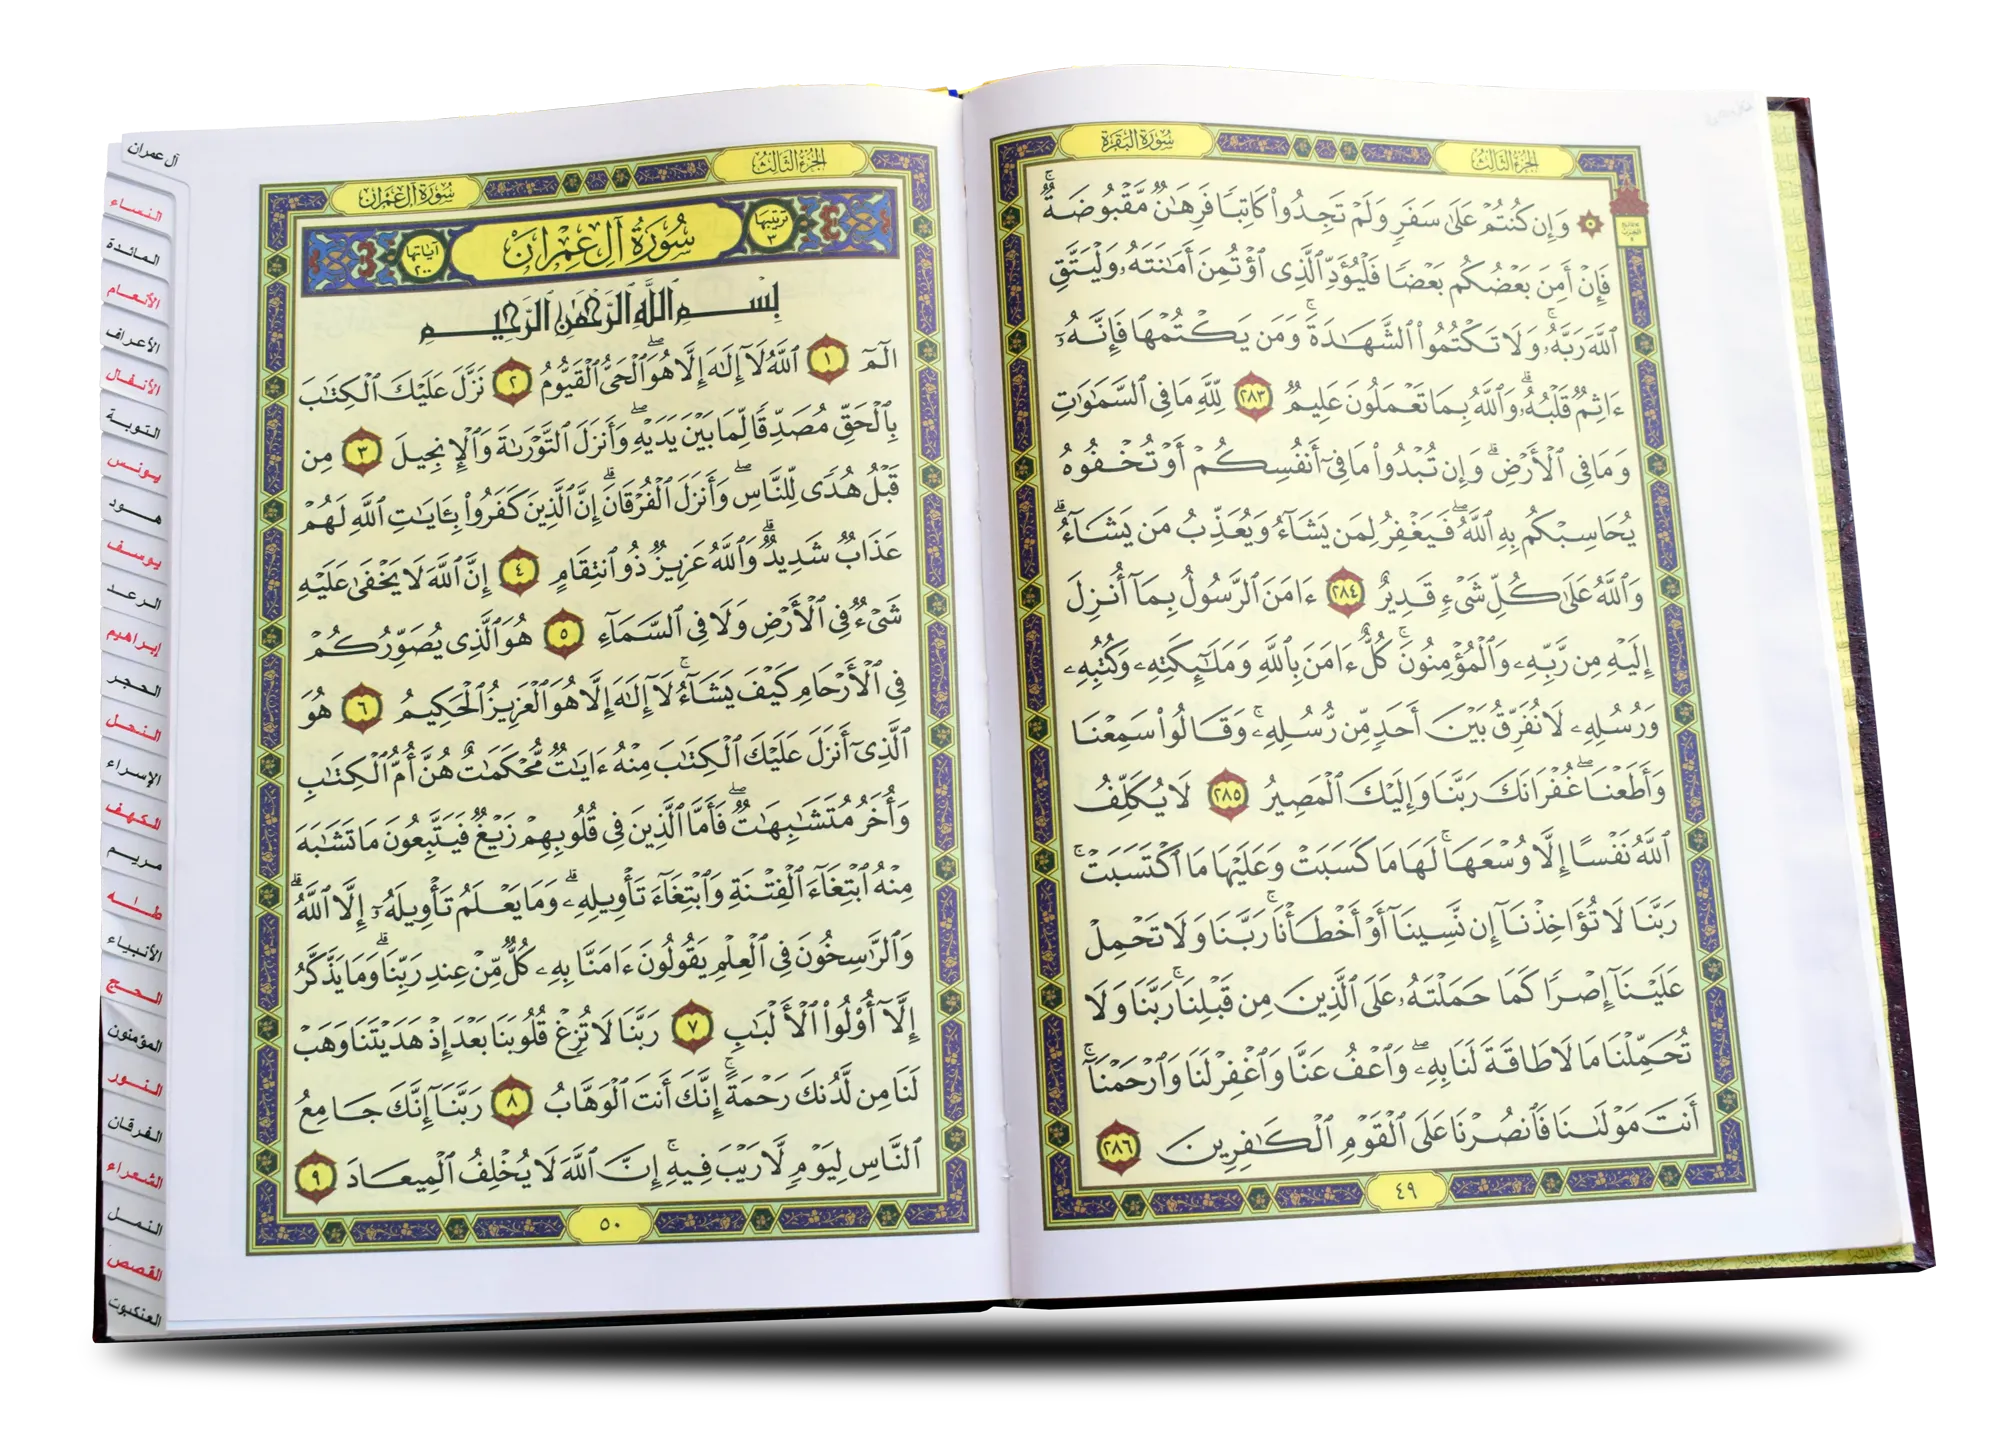 سُورَةُ البَقَرَة
الجُزْءُ الثَّالِثُ
۞ وَإِن كُنتُمْ عَلَىٰ سَفَرٍ وَلَمْ تَجِدُوا۟ كَاتِبًا فَرِهَـٰنٌ مَّقْبُوضَةٌ ۖ
فَإِنْ أَمِنَ بَعْضُكُم بَعْضًا فَلْيُؤَدِّ ٱلَّذِى ٱؤْتُمِنَ أَمَـٰنَتَهُۥ وَلْيَتَّقِ
ٱللَّهَ رَبَّهُۥ ۗ وَلَا تَكْتُمُوا۟ ٱلشَّهَـٰدَةَ ۚ وَمَن يَكْتُمْهَا فَإِنَّهُۥٓ
ءَاثِمٌ قَلْبُهُۥ ۗ وَٱللَّهُ بِمَا تَعْمَلُونَ عَلِيمٌ ٢٨٣ لِّلَّهِ مَا فِى ٱلسَّمَـٰوَٰتِ
وَمَا فِى ٱلْأَرْضِ ۗ وَإِن تُبْدُوا۟ مَا فِىٓ أَنفُسِكُمْ أَوْ تُخْفُوهُ
يُحَاسِبْكُم بِهِ ٱللَّهُ ۖ فَيَغْفِرُ لِمَن يَشَآءُ وَيُعَذِّبُ مَن يَشَآءُ ۗ
وَٱللَّهُ عَلَىٰ كُلِّ شَىْءٍ قَدِيرٌ ٢٨٤ ءَامَنَ ٱلرَّسُولُ بِمَآ أُنزِلَ
إِلَيْهِ مِن رَّبِّهِۦ وَٱلْمُؤْمِنُونَ ۚ كُلٌّ ءَامَنَ بِٱللَّهِ وَمَلَـٰٓئِكَتِهِۦ وَكُتُبِهِۦ
وَرُسُلِهِۦ لَا نُفَرِّقُ بَيْنَ أَحَدٍ مِّن رُّسُلِهِۦ ۚ وَقَالُوا۟ سَمِعْنَا
وَأَطَعْنَا ۖ غُفْرَانَكَ رَبَّنَا وَإِلَيْكَ ٱلْمَصِيرُ ٢٨٥ لَا يُكَلِّفُ
ٱللَّهُ نَفْسًا إِلَّا وُسْعَهَا ۚ لَهَا مَا كَسَبَتْ وَعَلَيْهَا مَا ٱكْتَسَبَتْ ۗ
رَبَّنَا لَا تُؤَاخِذْنَآ إِن نَّسِينَآ أَوْ أَخْطَأْنَا ۚ رَبَّنَا وَلَا تَحْمِلْ
عَلَيْنَآ إِصْرًا كَمَا حَمَلْتَهُۥ عَلَى ٱلَّذِينَ مِن قَبْلِنَا ۚ رَبَّنَا وَلَا
تُحَمِّلْنَا مَا لَا طَاقَةَ لَنَا بِهِۦ ۖ وَٱعْفُ عَنَّا وَٱغْفِرْ لَنَا وَٱرْحَمْنَآ ۚ
أَنتَ مَوْلَىٰنَا فَٱنصُرْنَا عَلَى ٱلْقَوْمِ ٱلْكَـٰفِرِينَ ٢٨٦
٤٩
الجُزْءُ الثَّالِثُ
سُورَةُ آلِ عِمْرَان
ترتيبها ٣
سُورَةُ آلِ عِمْرَانَ
آياتها ٢٠٠
بِسْمِ ٱللَّهِ ٱلرَّحْمَـٰنِ ٱلرَّحِيمِ
الٓمٓ ١ ٱللَّهُ لَآ إِلَـٰهَ إِلَّا هُوَ ٱلْحَىُّ ٱلْقَيُّومُ ٢ نَزَّلَ عَلَيْكَ ٱلْكِتَـٰبَ
بِٱلْحَقِّ مُصَدِّقًا لِّمَا بَيْنَ يَدَيْهِ وَأَنزَلَ ٱلتَّوْرَىٰةَ وَٱلْإِنجِيلَ ٣ مِن
قَبْلُ هُدًى لِّلنَّاسِ وَأَنزَلَ ٱلْفُرْقَانَ ۗ إِنَّ ٱلَّذِينَ كَفَرُوا۟ بِـَٔايَـٰتِ ٱللَّهِ لَهُمْ
عَذَابٌ شَدِيدٌ ۗ وَٱللَّهُ عَزِيزٌ ذُو ٱنتِقَامٍ ٤ إِنَّ ٱللَّهَ لَا يَخْفَىٰ عَلَيْهِ
شَىْءٌ فِى ٱلْأَرْضِ وَلَا فِى ٱلسَّمَآءِ ٥ هُوَ ٱلَّذِى يُصَوِّرُكُمْ
فِى ٱلْأَرْحَامِ كَيْفَ يَشَآءُ ۚ لَآ إِلَـٰهَ إِلَّا هُوَ ٱلْعَزِيزُ ٱلْحَكِيمُ ٦ هُوَ
ٱلَّذِىٓ أَنزَلَ عَلَيْكَ ٱلْكِتَـٰبَ مِنْهُ ءَايَـٰتٌ مُّحْكَمَـٰتٌ هُنَّ أُمُّ ٱلْكِتَـٰبِ
وَأُخَرُ مُتَشَـٰبِهَـٰتٌ ۖ فَأَمَّا ٱلَّذِينَ فِى قُلُوبِهِمْ زَيْغٌ فَيَتَّبِعُونَ مَا تَشَـٰبَهَ
مِنْهُ ٱبْتِغَآءَ ٱلْفِتْنَةِ وَٱبْتِغَآءَ تَأْوِيلِهِۦ ۗ وَمَا يَعْلَمُ تَأْوِيلَهُۥٓ إِلَّا ٱللَّهُ ۗ
وَٱلرَّٰسِخُونَ فِى ٱلْعِلْمِ يَقُولُونَ ءَامَنَّا بِهِۦ كُلٌّ مِّنْ عِندِ رَبِّنَا ۗ وَمَا يَذَّكَّرُ
إِلَّآ أُو۟لُوا۟ ٱلْأَلْبَـٰبِ ٧ رَبَّنَا لَا تُزِغْ قُلُوبَنَا بَعْدَ إِذْ هَدَيْتَنَا وَهَبْ
لَنَا مِن لَّدُنكَ رَحْمَةً ۚ إِنَّكَ أَنتَ ٱلْوَهَّابُ ٨ رَبَّنَآ إِنَّكَ جَامِعُ
ٱلنَّاسِ لِيَوْمٍ لَّا رَيْبَ فِيهِ ۚ إِنَّ ٱللَّهَ لَا يُخْلِفُ ٱلْمِيعَادَ ٩
٥٠
آل عمران
النساء
المائدة
الأنعام
الأعراف
الأنفال
التوبة
يونس
هود
يوسف
الرعد
إبراهيم
الحجر
النحل
الإسراء
الكهف
مريم
طه
الأنبياء
الحج
المؤمنون
النور
الفرقان
الشعراء
النمل
القصص
العنكبوت